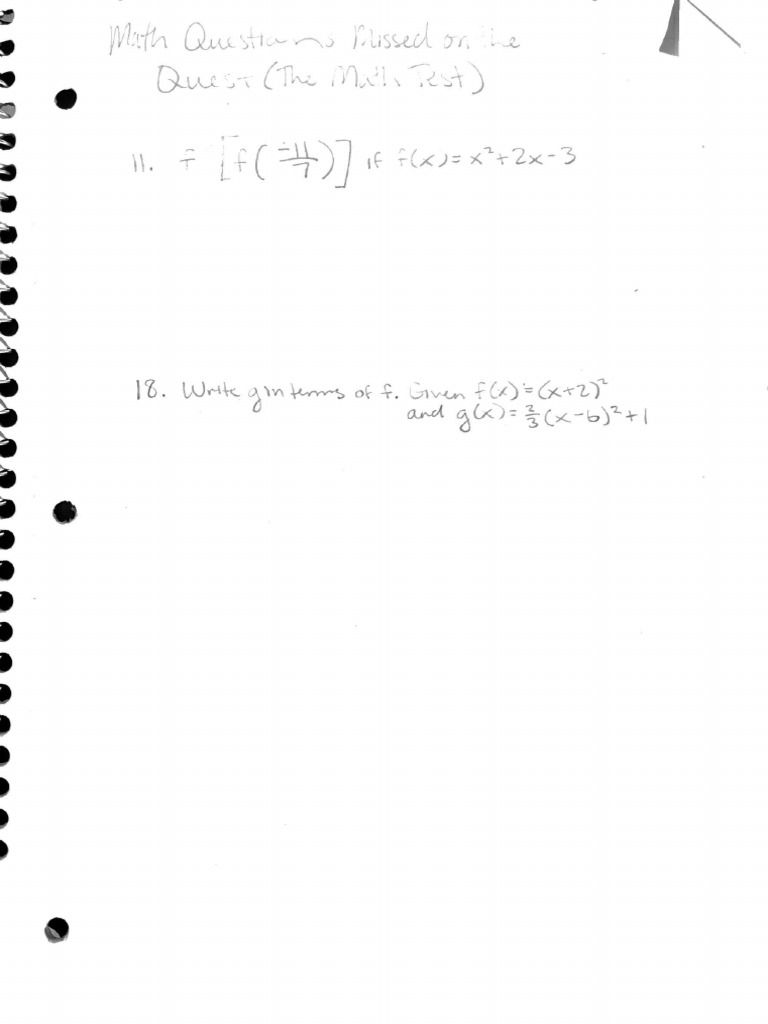 Math Questions Missed on the
Quest (The Math Test)
11. f [f(-11/7)] if f(x)=x²+2x-3
18. Write g in terms of f. Given f(x)=(x+2)²
and g(x)=2/3(x-6)²+1